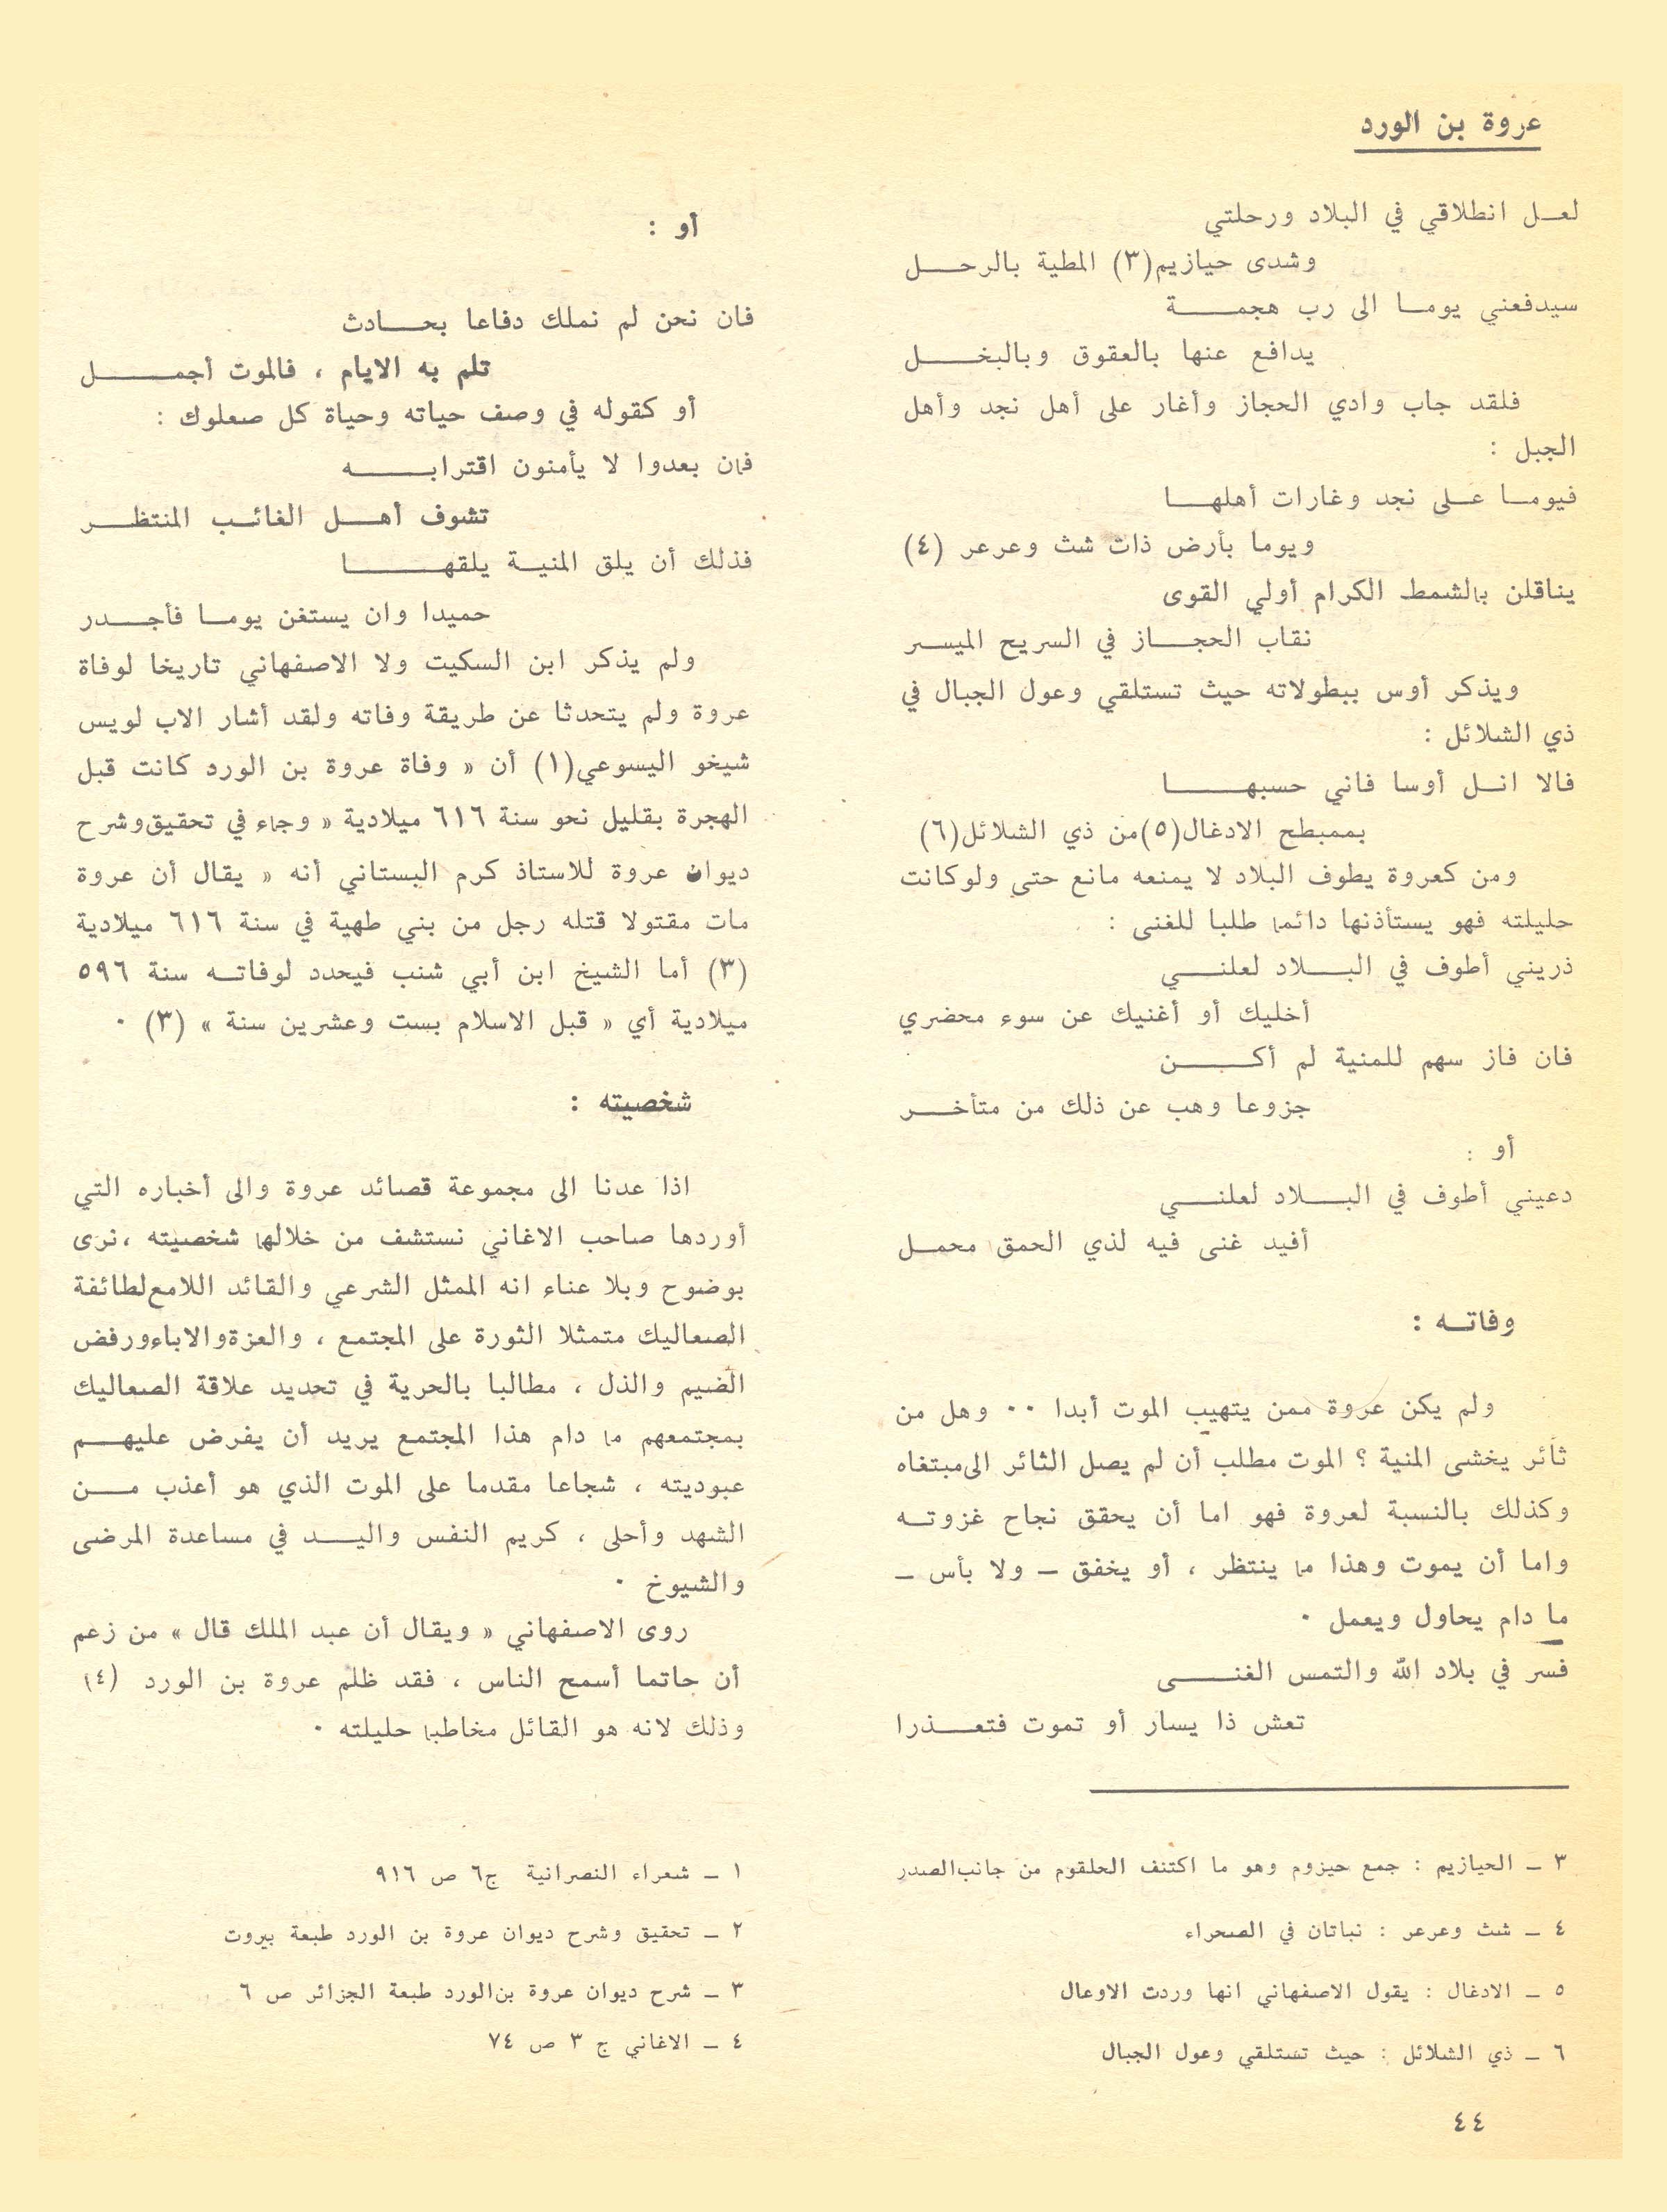 عروة بن الورد
لعل انطلاقي في البلاد ورحلتي
وشدى حيازيم(٣) المطية بالرحل
سيدفعني يوما الى رب هجمة
يدافع عنها بالعقوق وبالبخل
فلقد جاب وادي الحجاز وأغار على أهل نجد وأهل
الجبل :
فيوما على نجد وغارات أهلها
ويوما بأرض ذات شث وعرعر (٤)
يناقلن بالشمط الكرام أولي القوى
نقاب الحجاز في السريح الميسر
ويذكر أوس ببطولاته حيث تستلقي وعول الجبال في
ذي الشلائل :
فالا انل أوسا فاني حسبها
بممبطح الادغال(٥)من ذي الشلائل(٦)
ومن كعروة يطوف البلاد لا يمنعه مانع حتى ولوكانت
حليلته فهو يستأذنها دائما طلبا للغنى :
ذريني أطوف في البلاد لعلني
أخليك أو أغنيك عن سوء محضري
فان فاز سهم للمنية لم أكن
جزوعا وهب عن ذلك من متأخر
أو :
دعيني أطوف في البلاد لعلني
أفيد غنى فيه لذي الحمق محمل
وفاته :
ولم يكن عروة ممن يتهيب الموت أبدا ٠٠ وهل من
ثائر يخشى المنية ؟ الموت مطلب أن لم يصل الثائر الى مبتغاه
وكذلك بالنسبة لعروة فهو اما أن يحقق نجاح غزوته
واما أن يموت وهذا ما ينتظر ، أو يخفق ــ ولا بأس ــ
ما دام يحاول ويعمل ٠
فسر في بلاد الله والتمس الغنى
تعش ذا يسار أو تموت فتعذرا
٣ ــ الحيازيم : جمع حيزوم وهو ما اكتنف الحلقوم من جانب الصدر
٤ ــ شث وعرعر : نباتان في الصحراء
٥ ــ الادغال : يقول الاصفهاني انها وردت الاوعال
٦ ــ ذي الشلائل : حيث تستلقي وعول الجبال
أو :
فان نحن لم نملك دفاعا بحادث
تلم به الايام ، فالموت أجمل
أو كقوله في وصف حياته وحياة كل صعلوك :
فان بعدوا لا يأمنون اقترابه
تشوف أهل الغائب المنتظر
فذلك أن يلق المنية يلقها
حميدا وان يستغن يوما فأجدر
ولم يذكر ابن السكيت ولا الاصفهاني تاريخا لوفاة
عروة ولم يتحدثا عن طريقة وفاته ولقد أشار الاب لويس
شيخو اليسوعي(١) أن « وفاة عروة بن الورد كانت قبل
الهجرة بقليل نحو سنة ٦١٦ ميلادية « وجاء في تحقيق وشرح
ديوان عروة للاستاذ كرم البستاني أنه « يقال أن عروة
مات مقتولا قتله رجل من بني طهية في سنة ٦١٦ ميلادية
(٣) أما الشيخ ابن أبي شنب فيحدد لوفاته سنة ٥٩٦
ميلادية أي « قبل الاسلام بست وعشرين سنة » (٣) ٠
شخصيته :
اذا عدنا الى مجموعة قصائد عروة والى أخباره التي
أوردها صاحب الاغاني نستشف من خلالها شخصيته ،نرى
بوضوح وبلا عناء انه الممثل الشرعي والقائد اللامع لطائفة
الصعاليك متمثلا الثورة على المجتمع ، والعزة والاباء ورفض
الضيم والذل ، مطالبا بالحرية في تحديد علاقة الصعاليك
بمجتمعهم ما دام هذا المجتمع يريد أن يفرض عليهم
عبوديته ، شجاعا مقدما على الموت الذي هو أعذب من
الشهد وأحلى ، كريم النفس واليد في مساعدة المرضى
والشيوخ ٠
روى الاصفهاني « ويقال أن عبد الملك قال » من زعم
أن حاتما أسمح الناس ، فقد ظلم عروة بن الورد (٤)
وذلك لانه هو القائل مخاطبا حليلته ٠
١ ــ شعراء النصرانية ج٦ ص ٩١٦
٢ ــ تحقيق وشرح ديوان عروة بن الورد طبعة بيروت
٣ ــ شرح ديوان عروة بن الورد طبعة الجزائر ص ٦
٤ ــ الاغاني ج ٣ ص ٧٤
٤٤